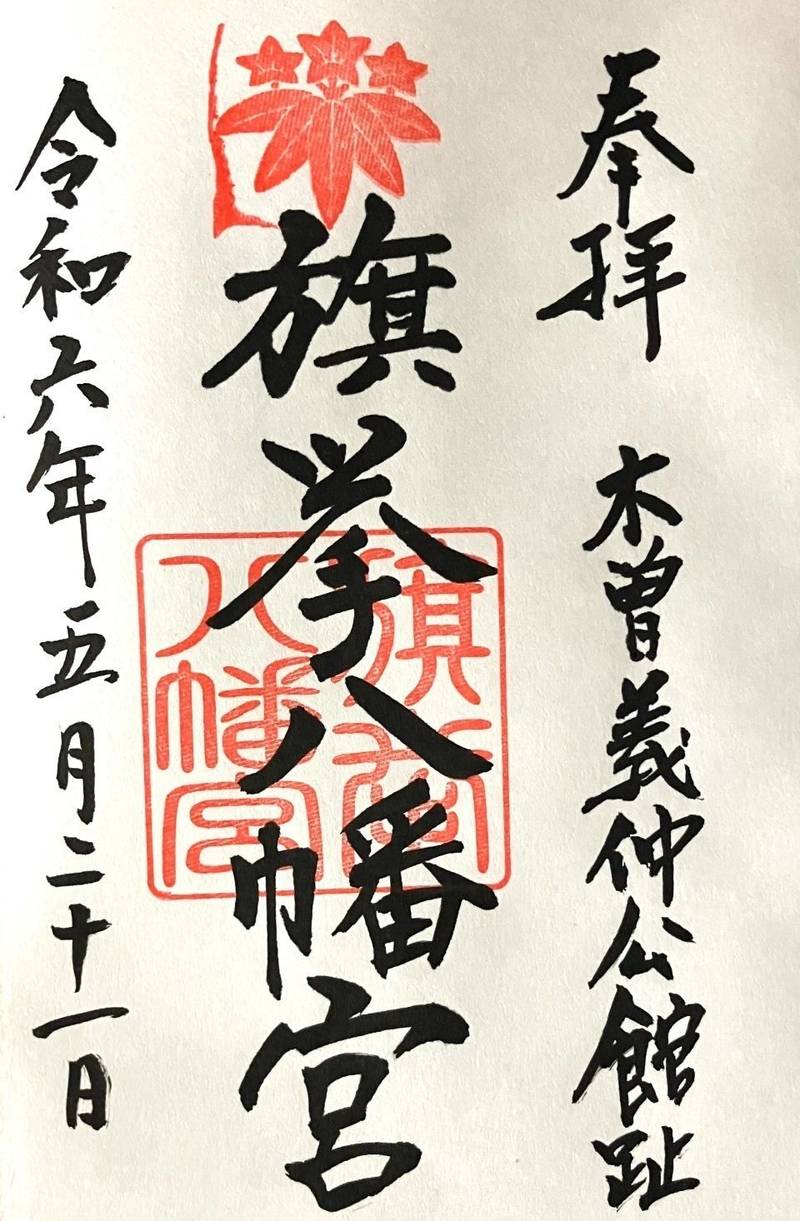 奉拝
木曽義仲公館趾
旗挙八幡宮
旗挙
八幡宮
令和六年五月二十一日